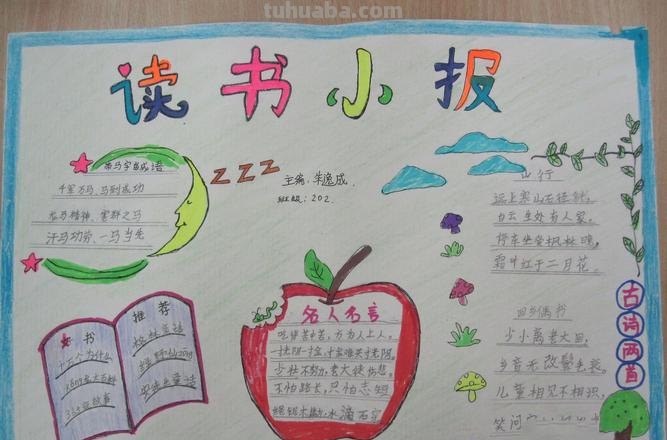 tuhuaba.com
读书小报
带马字的成语
千军万马、马到成功
龙马精神、害群之马
汗马功劳、一马当先
zzz
主编：朱逸成
班级：202.
山行
远上寒山石径斜，
白云生处有人家。
停车坐爱枫林晚，
霜叶红于二月花。
回乡偶书
少小离老大回，
乡音无改鬓毛衰。
儿童相见不相识，
笑问
古诗两首
名人名言
吃得苦中苦，方为人上人。
一寸光阴一寸金，寸金难买寸光阴。
少壮不努力，老大徒伤悲。
不怕路长，只怕志短
绳锯木断，水滴石穿
好书
推荐
十万个为什么
故事
格林童话